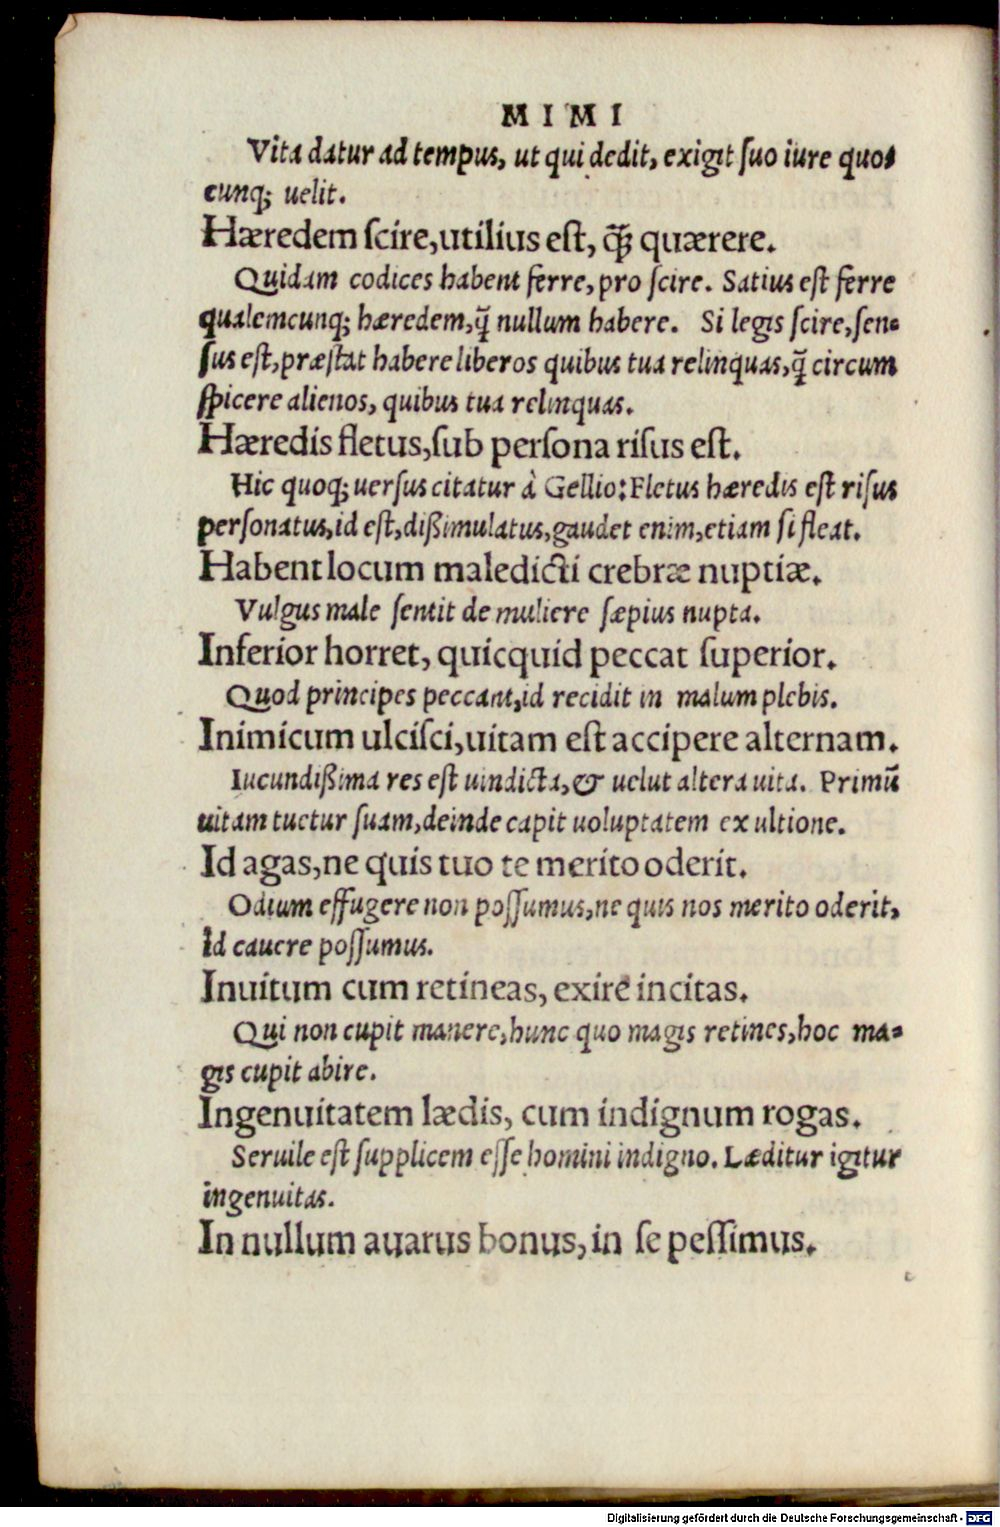 MIMI
Vita datur ad tempus, ut qui dedit, exigit suo iure quo⸗
cunq; uelit.
Hæredem scire, utilius est, q̃ꝫ quærere.
Quidam codices habent ferre, pro scire. Satius est ferre
qualemcunq; hæredem, q̃ nullum habere. Si legis scire, sen⸗
sus est, præstat habere liberos quibus tua relinquas, q̃ circum
spicere alienos, quibus tua relinquas.
Hæredis fletus, sub persona risus est.
Hic quoq; uersus citatur à Gellio: Fletus hæredis est risus
personatus, id est, dißimulatus, gaudet enim, etiam si fleat.
Habent locum maledicti crebræ nuptiæ.
Vulgus male sentit de muliere sæpius nupta.
Inferior horret, quicquid peccat superior.
Quod principes peccant, id recidit in malum plebis.
Inimicum ulcisci, uitam est accipere alternam.
Iucundißima res est uindicta, & uelut altera uita. Primũ
uitam tuetur suam, deinde capit uoluptatem ex ultione.
Id agas, ne quis tuo te merito oderit.
Odium effugere non possumus, ne quis nos merito oderit,
id cauere possumus.
Inuitum cum retineas, exire incitas.
Qui non cupit manere, hunc quo magis retines, hoc ma⸗
gis cupit abire.
Ingenuitatem lædis, cum indignum rogas.
Seruile est supplicem esse homini indigno. Læditur igitur
ingenuitas.
In nullum auarus bonus, in se pessimus.
Digitalisierung gefördert durch die Deutsche Forschungsgemeinschaft - DFG